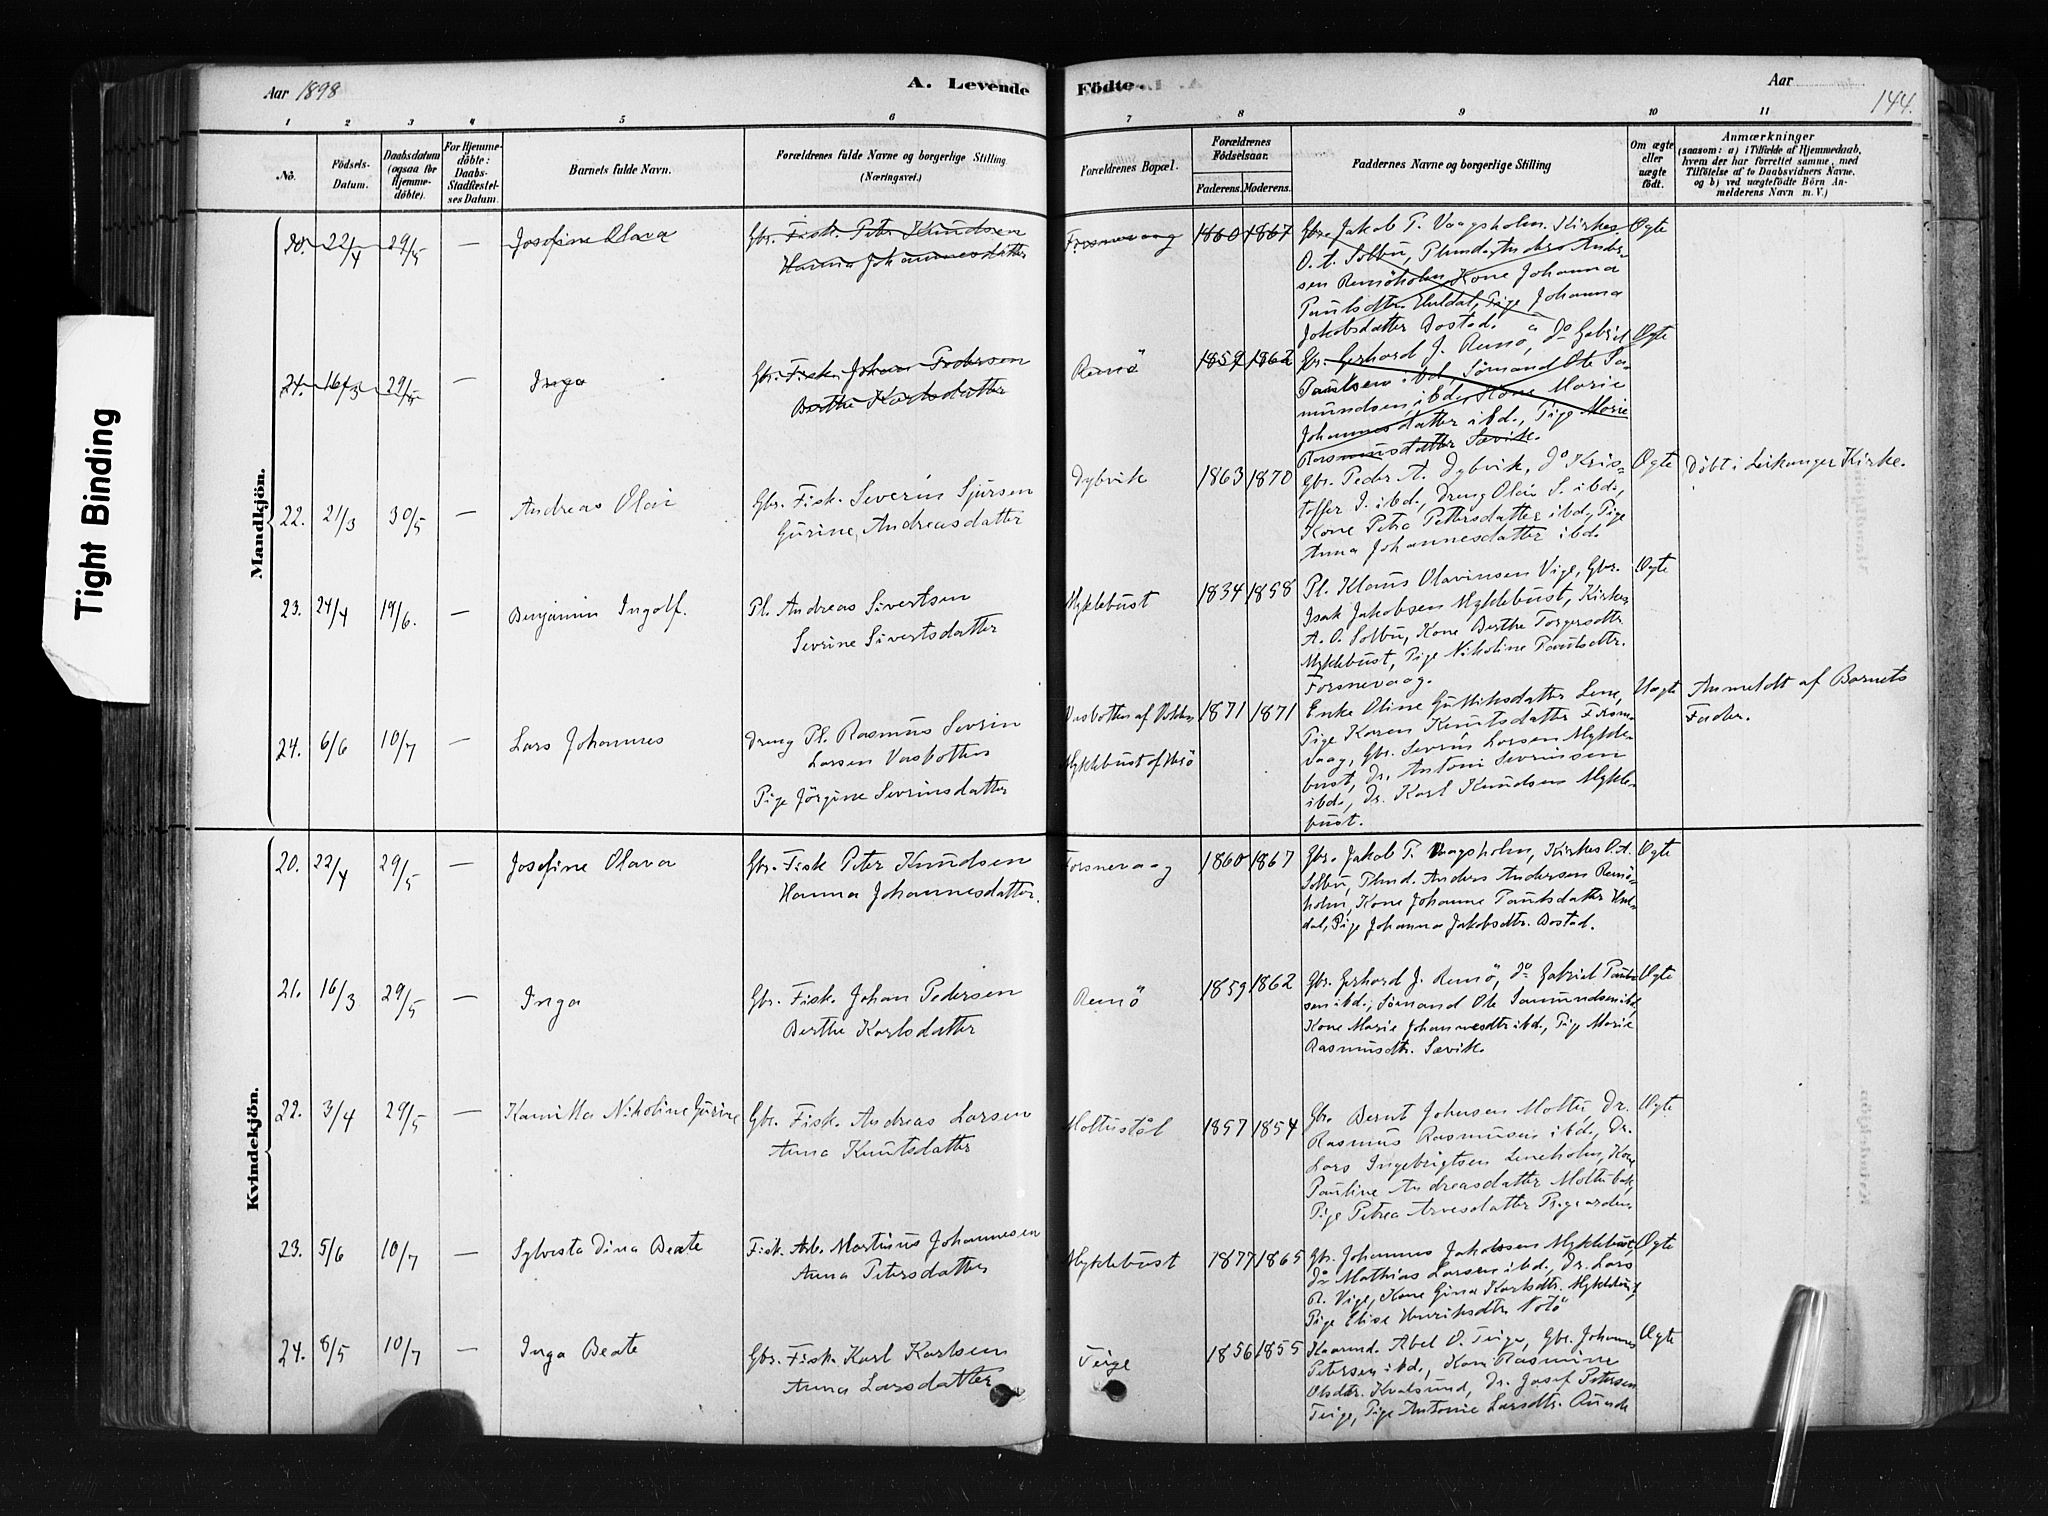 Tight Binding
Aar 1898
A. Levende
Födte.
Aar
144.
1 2 3 4 5 6 7 8 9 10 11
No.
Födsels-
Datum.
Daabsdatum
(ogsaa for
Hjemme-
döbte).
For Hjemme-
döbte:
Daabs-
Stadfæstel-
ses Datum.
Barnets fulde Navn.
Forældrenes fulde Navne og borgerlige Stilling
(Næringsvei.)
Forældrenes Bopæl.
Forældrenes
Födselsaar.
Faderens. Moderens.
Faddernes Navne og borgerlige Stilling
Om ægte
eller
uægte
födt.
Anmærkninger
(saasom: a) i Tilfælde af Hjemmedaab,
hvem der har forrettet samme, med
Tilföielse af to Daabsvidners Navne.
og b) ved uægtefödte Börn An-
melderens Navn m. V.)
Mandkjön.
20. 22/4 29/5 — Josefine Olava
Gbr. Fisk. Peter Knudsen
Hanna Johannesdatter
Forsnevaag 1860 1867
Gbr. Jakob T. Vaagsholm. Kirkes.
O. A. Solbu, Plmd. Anders Ander-
sen Remöholm Kone Johanna
Paulsdtr. Huldal, Pige Johanna
Jakobsdatter Bostad.
Ægte
21. 16/3 29/5 — Inga
Gbr. Fisk. Johan Pedersen
Berthe Karlsdatter
Remö 1859 1862
Gbr. Gerhard J. Remö, do Gabriel
Paulsen ibd, Sömand Ole Sa-
mundsen, ibd., Kone Marie
Johannesdatter ibd., Pige Marie
Rasmusdatter Sævik.
Ægte
22. 21/3 30/5 — Andreas Olai
Gbr. Fisk. Severin Sjursen
Gurine Andreasdatter
Dybvik 1863 1870
Gbr. Peder A. Dybvik, do Kris-
toffer I. ibd., Dreng Olai S. ibd.,
Kone Petra Pettersdatter ibd, Pige
Anna Johannesdatter ibd.
Ægte
Döbt i Leikanger Kirke.
23. 24/4 19/6. — Benjamin Ingolf.
Pl. Andreas Sivertsen
Sevrine Sivertsdatter
Myklebust 1834 1858
Pl. Klaus Olavinsen Vige, Gbr.
Isak Jakobsen Myklebust, Kirkes.
A. O. Solbu, Kone Berthe Torgersdtr
Myklebust, Pige Nikoline Paulsdtr.
Forsnevaag.
Ægte
24. 6/6 10/7 — Lars Johannes
Dreng Pl. Rasmus Sevrin
Larsen Vasbotten
Pige Jörgine Sevrinsdatter
Vasbotten af Volden
Myklebust af Herö
1871 1871
Enke Oline Guttiksdatter Lene,
Pige Karen Knutsdatter Forsne-
vaag, Gbr. Sevrin Larsen Mykle-
bust, Dr. Antoni Sevrinsen
ibd., Dr. Karl Knudsen Mykle-
bust.
Uægte
Anmeldt af Barnets
Fader.
Kvindekjön.
20. 22/4 29/5 — Josefine Olava
Gbr. Fisk Peter Knudsen
Hanna Johannesdatter.
Forsnevaag 1860 1867
Gbr. Jakob T. Vaagsholm, Kirkes O. A.
Solbu, Plmd. Anders Andersen Remö-
holm, Kone Johanne Paulsdatter Hul-
dal, Pige Johanna Jakobsdtr. Bostad.
Ægte
21. 16/3 29/5 — Inga
Gbr. Fisk. Johan Pedersen
Berthe Karlsdatter
Remö 1859 1862
Gbr. Gerhard J. Remö, do Gabriel Paul-
sen ibd., Sömand Ole Samundsen ibd,
Kone Marie Johannesdtr ibd., Pige Marie
Rasmusdtr. Sævik.
Ægte
22. 3/4 29/5 — Kamilla Nikoline Gurine
Gbr. Fisk. Andreas Larsen
Anna Knutsdatter
Moltustöl 1857 1854
Gbr. Bernt Johnsen Moltu, Dr.
Rasmus Rasmusen ibd., Dr.
Lars Ingebrigtsen Leneholm, Kone
Pauline Andreasdatter Moltubak,
Pige Petrea Arnesdatter
Ægte
23. 5/6 10/7 — Sylvesta Dina Beate
Fisk. Arb. Martinus Johannesen
Anna Petersdatter
Myklebust 1877 1865
Gbr. Johannes Jakobsen Myklebust,
do Mathias Larsen ibd., Dr. Lars
R. Vige, Kone Gina Karlsdtr. Myklebust,
Pige Elise Henriksdtr Notö
Ægte
24. 8/5 10/7 — Inga Beate
Gbr. Fisk. Karl Karlsen
Anna Larsdatter
Teige 1856 1855
Kaarmd. Abel O. Teige, Gbr. Johannes
Petersen ibd., Kone Rasmine
Olsdtr. Kvalsund, Dr. Josef Petersen
Teige, Pige Antonie Larsdtr. Aurvde
Ægte